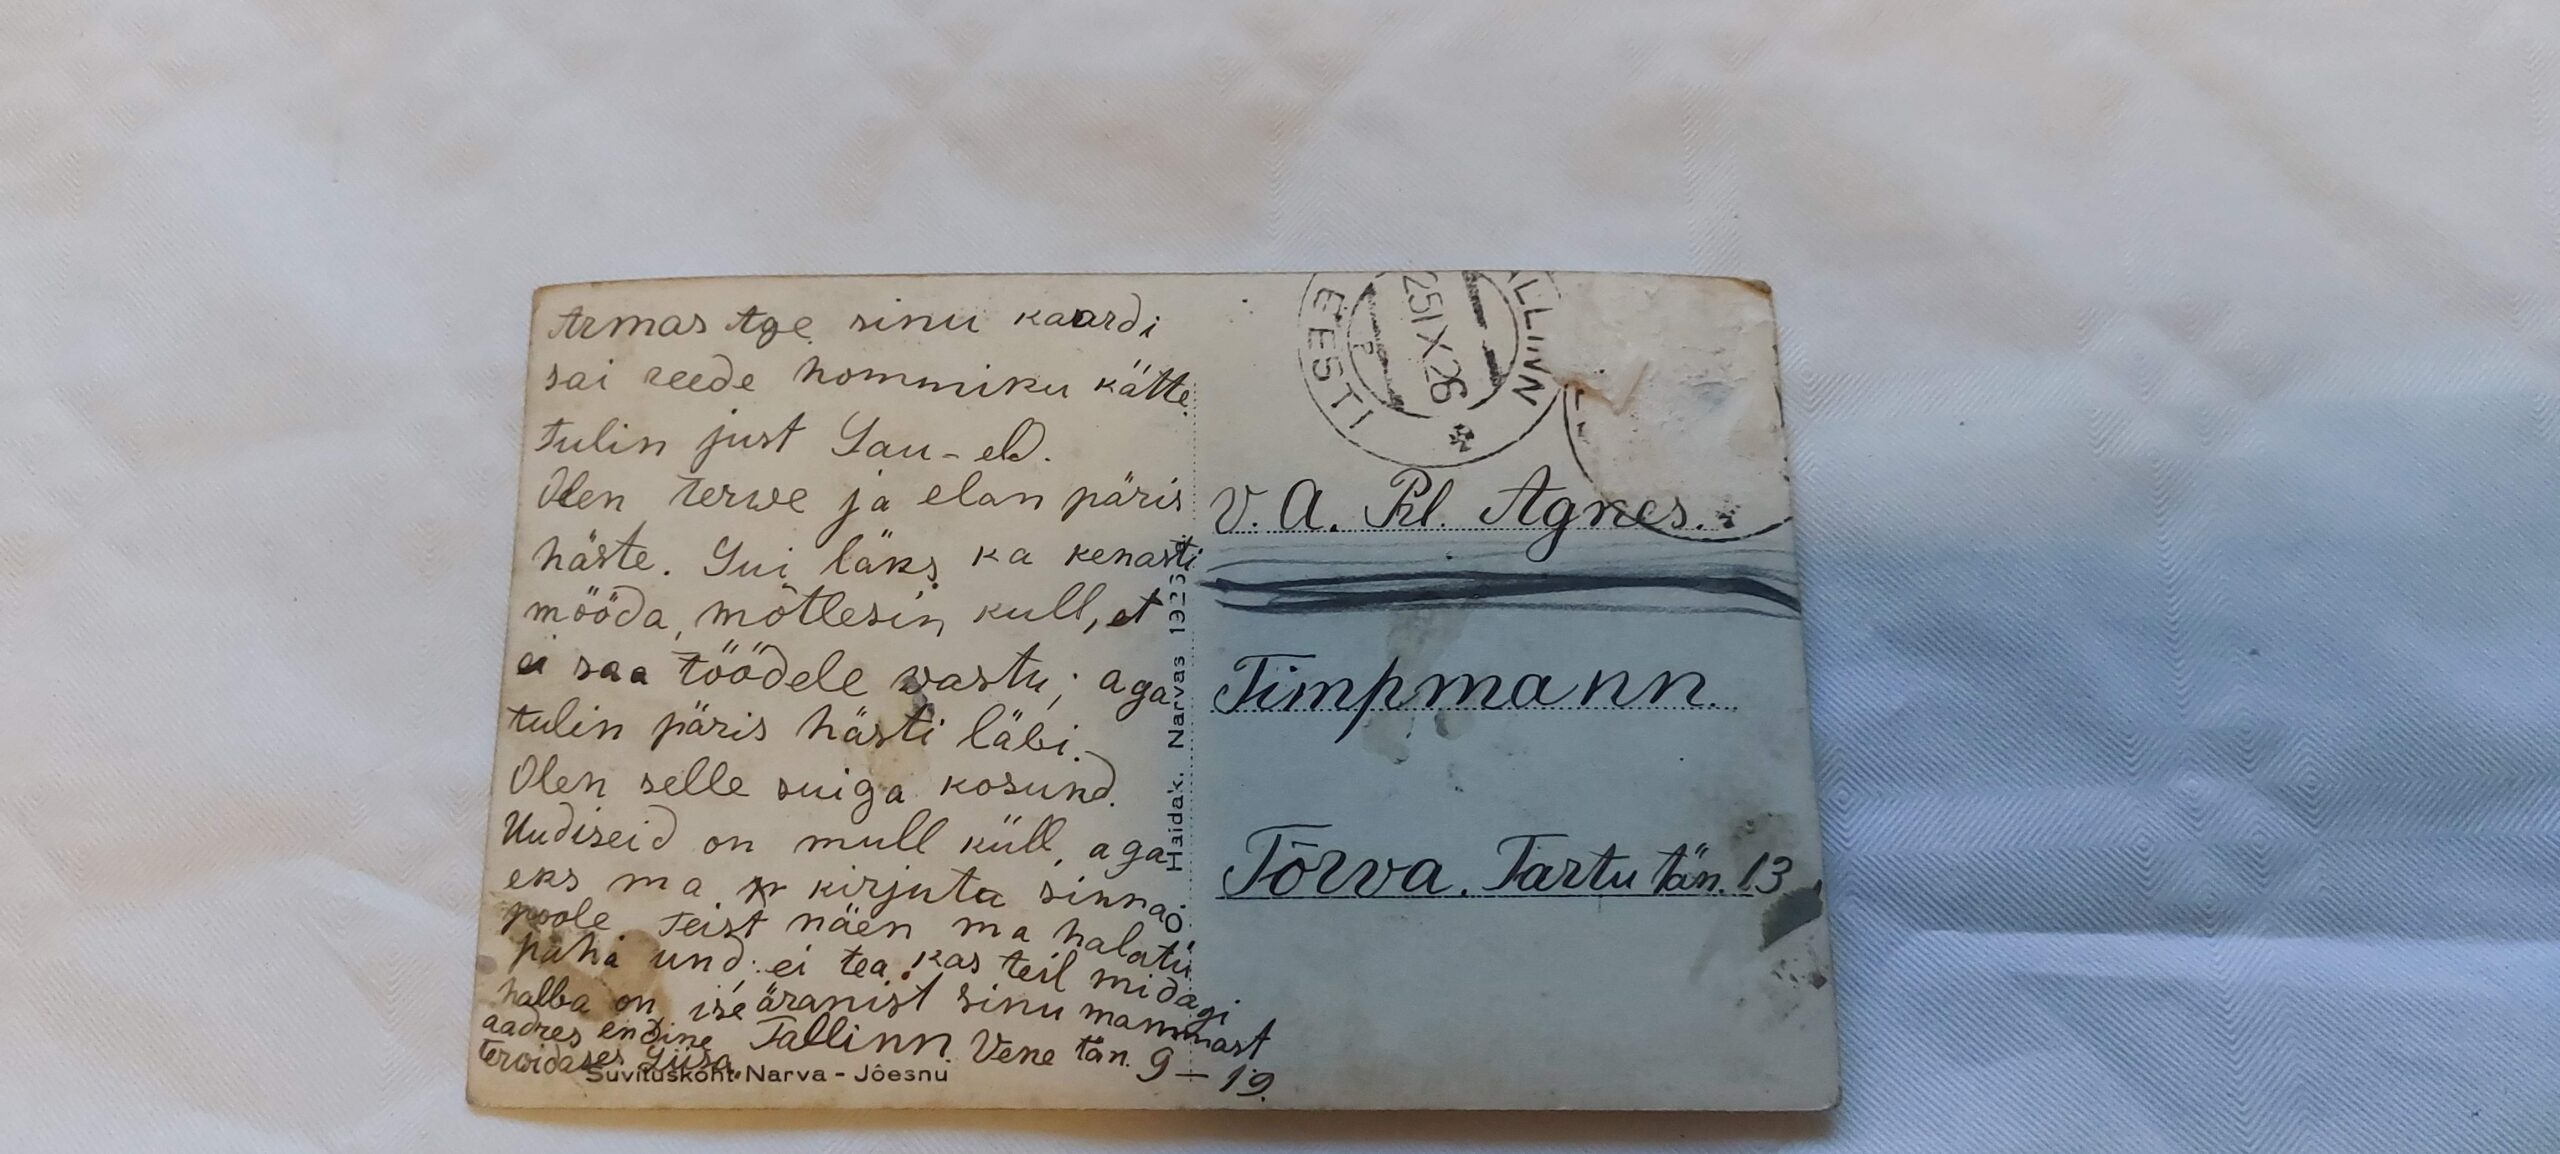 Armas Age sinu kaardi
sai reede hommiku kätte.
Tulin just Lau-eld.
Olen terwe ja elan päris
häste. Sui läks ka kenasti
mööda, mõtlesin kull, et
ei saa töödele wastu; aga
tulin päris hästi läbi.
Olen selle suiga kosund.
Uudiseid on mull küll, aga
eks ma kirjuta sinna
poole Teist näen ma halatü
paha und; ei tea kas teil midagi
halba on iseäranist sinu mammast
aadres endine Tallinn. Vene tän. 9-19.
terwidases Liisa.
Suvituskoht Narva - Jõesnu
O. Haidak, Narvas 1926 a.
EESTI
TALLINN
25 IX 26
V. A. Prl. Agnes.
Timpmann.
Tõrva. Tartu tän. 13